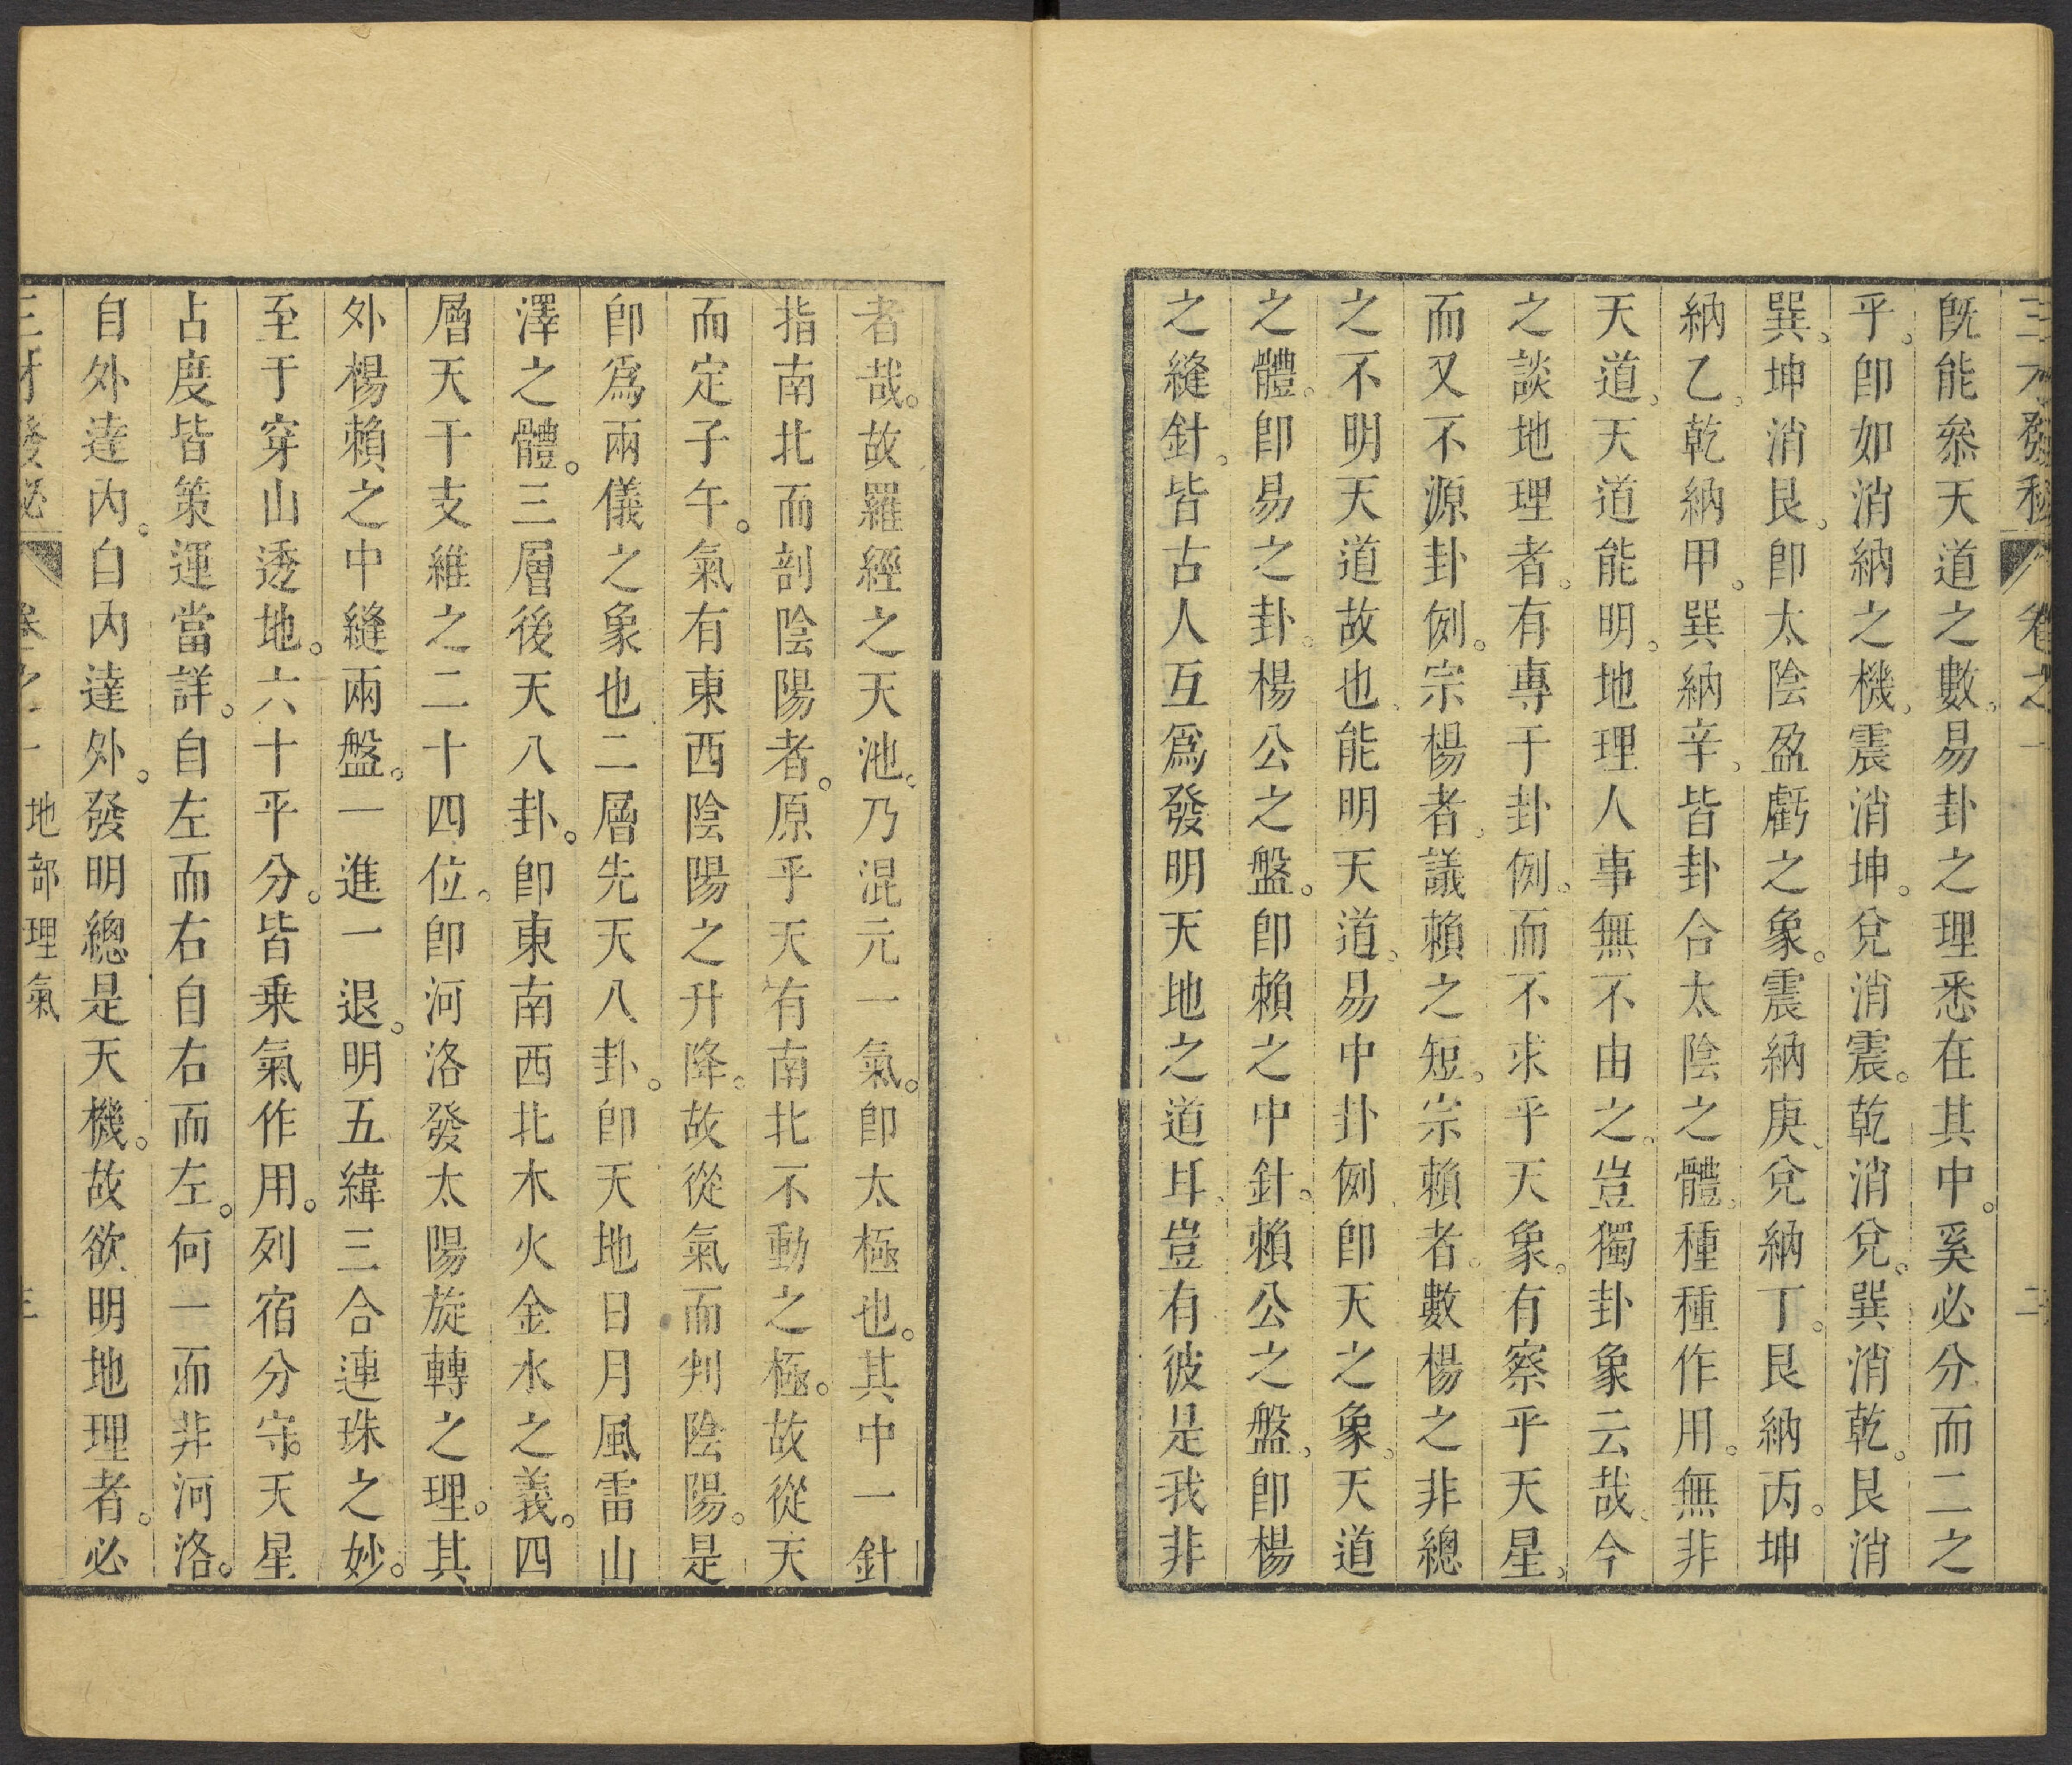 三才發秘 卷之一 二
既能叅天道之數。易卦之理悉在其中。奚必分而二之
乎。卽如消納之機。震消坤。兌消震。乾消兌。巽消乾。艮消
巽。坤消艮。卽太陰盈虧之象。震納庚、兌納丁。艮納丙。坤
納乙。乾納甲。巽納辛。皆卦合太陰之體。種種作用。無非
天道。天道能明。地理人事無不由之。豈獨卦象云哉。今
之談地理者。有專于卦例。而不求乎天象。有察乎天星。
而又不源卦例。宗楊者。議賴之短。宗賴者。數楊之非。總
之不明天道故也。能明天道。易中卦例。卽天之象。天道
之體。卽易之卦。楊公之盤。卽賴之中針。賴公之盤。卽楊
之縫針。皆古人互爲發明天地之道耳。豈有彼是我非
者哉。故羅經之天池。乃混元一氣。卽太極也。其中一針
指南北而剖陰陽者。原乎天有南北不動之極。故從天
而定子午。氣有東西陰陽之升降。故從氣而判陰陽。是
卽爲兩儀之象也。二層先天八卦。卽天地日月風雷山
澤之體。三層後天八卦。卽東南西北木火金水之義。四
層天干支維之二十四位。卽河洛發太陽旋轉之理。其
外楊賴之中縫兩盤。一進一退。明五緯三合連珠之妙。
至于穿山透地。六十平分。皆乗氣作用。列宿分守。天星
占度皆策運當詳。自左而右自右而左。何一而非河洛。
自外達內。自內達外。發明總是天機。故欲明地理者。必
三才發秘 卷之一 地部理氣 三